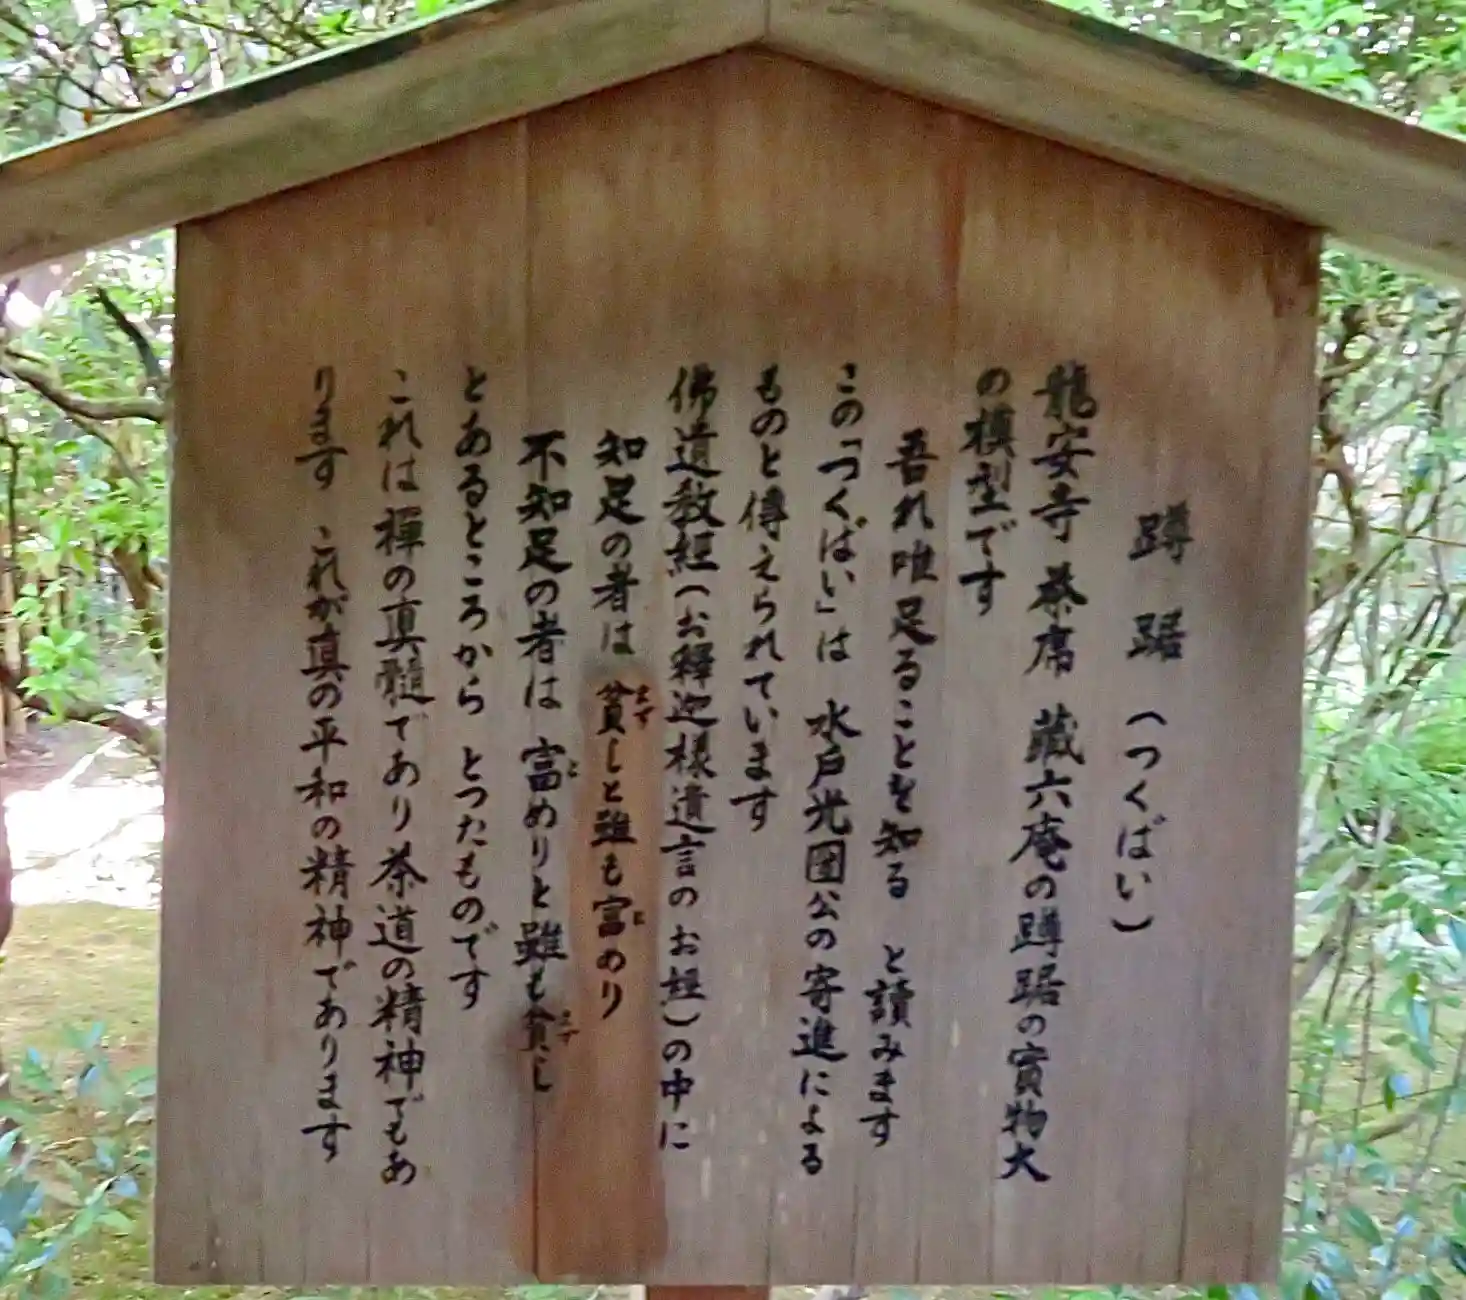 蹲踞（つくばい）
龍安寺 茶席 藏六庵の蹲踞の實物大
の模型です
吾れ唯足ることを知る と讀みます
この「つくばい」は 水戸光圀公の寄進による
ものと傳えられています
佛道教経（お釋迦様遺言のお経）の中に
知足の者は 貧しと雖も富めり
不知足の者は 富めりと雖も貧し
とあるところから とつたものです
これは禅の真髓であり茶道の精神でもあ
ります これが真の平和の精神であります